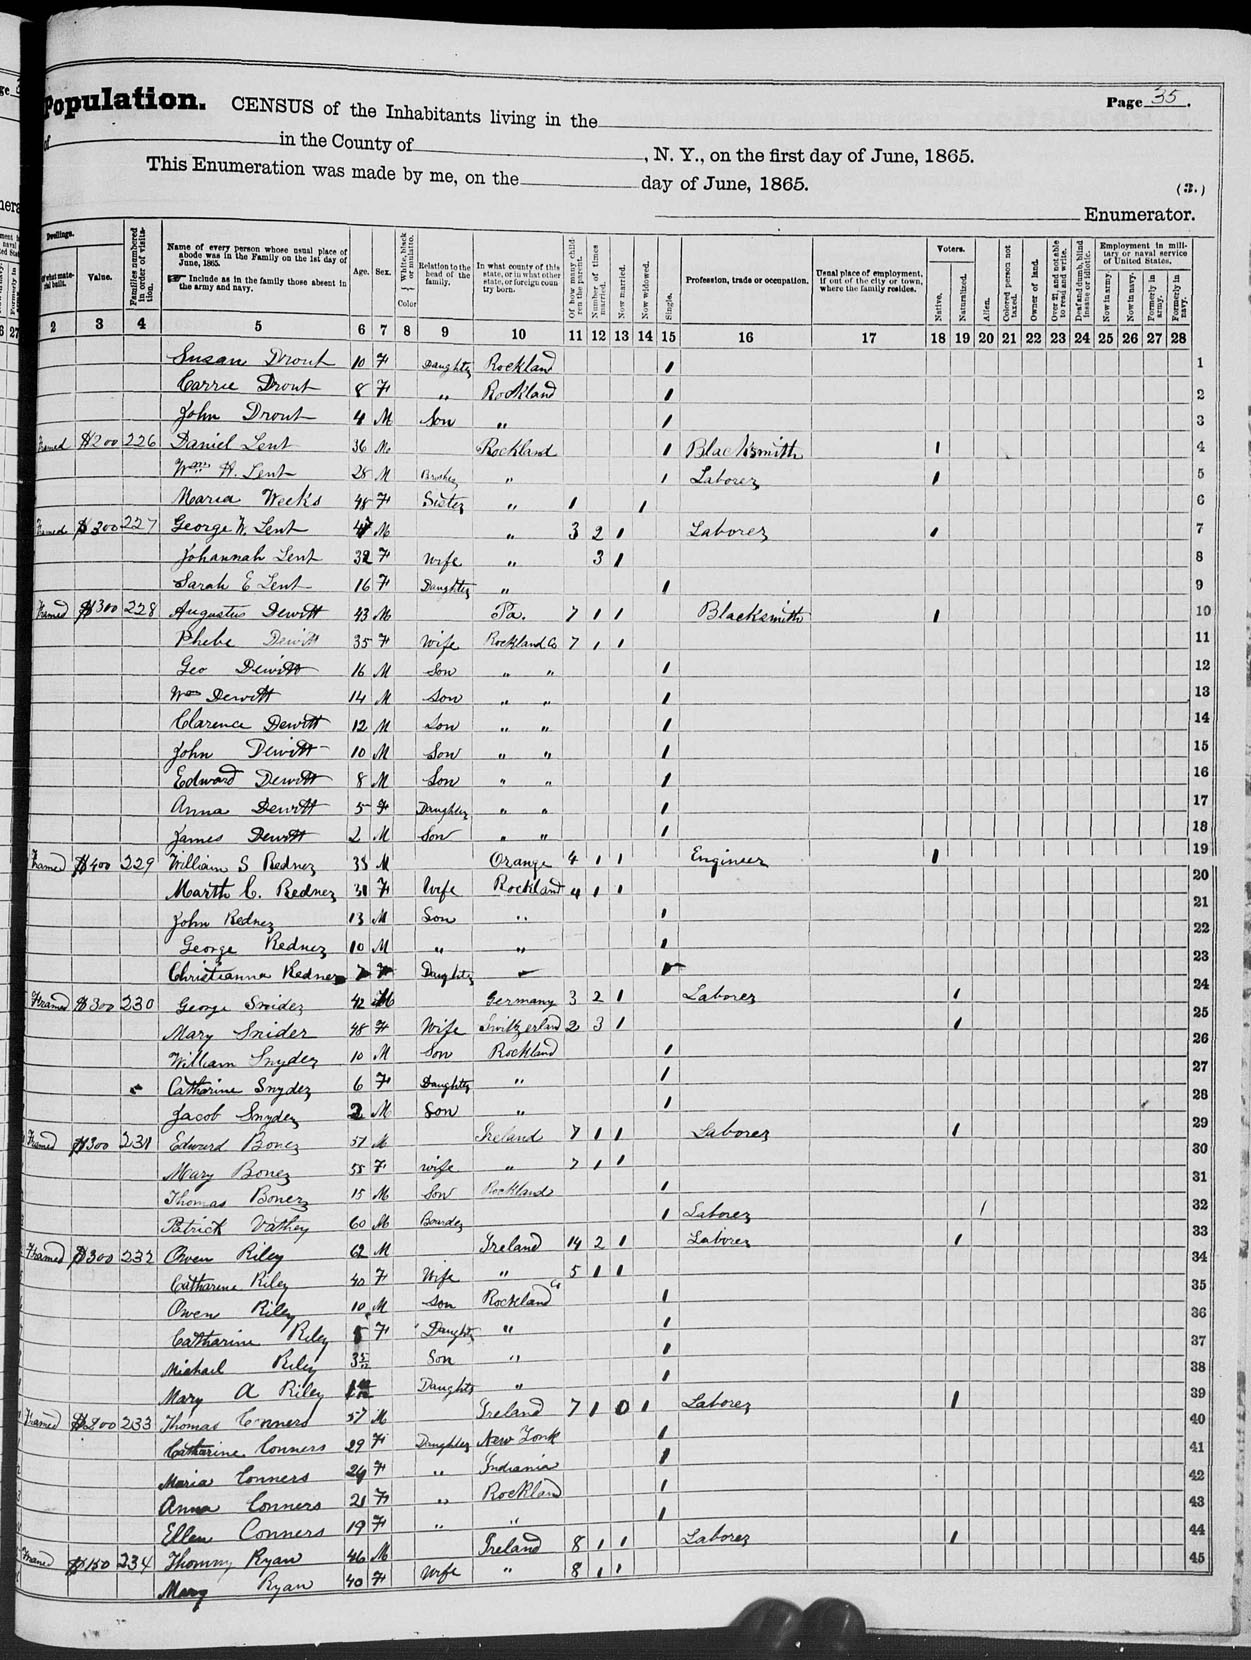 Population. CENSUS of the Inhabitants living in the Page 35.
of in the County of , N. Y., on the first day of June, 1865.
This Enumeration was made by me, on the day of June, 1865.
(3.)
Enumerator.
Dwellings. Value. Families numbered in order of visitation. Name of every person whose usual place of abode was in the Family on the 1st day of June, 1865. Include as in the family those absent in the army and navy. Age. Sex. White, black or mulatto. Color Relation to the head of the family. In what county of this state, or in what other state, or foreign country born. Of how many children the parent. Number of times married. Now married. Now widowed. Single. Profession, trade or occupation. Usual place of employment, if out of the city or town, where the family resides. Voters. Native. Naturalized. Alien. Colored person not taxed. Owner of land. Over 21, and not able to read and write. Deaf and dumb, blind insane or idiotic. Employment in military or naval service of United States. Now in army. Now in navy. Formerly in army. Formerly in navy.
2 3 4 5 6 7 8 9 10 11 12 13 14 15 16 17 18 19 20 21 22 23 24 25 26 27 28
Susan Drout 10 F Daughter Rockland 1 1
Carrie Drout 8 F " Rockland 1 2
John Drout 4 M Son " 1 3
Framed $200 226 Daniel Lent 36 M Rockland 1 Blacksmith 1 4
Wm H. Lent 28 M Brother " 1 Laborer 1 5
Maria Weeks 48 F Sister " 1 1 6
Framed $300 227 George W. Lent 47 M " 3 2 1 Laborer 1 7
Johannah Lent 32 F Wife " 3 1 8
Sarah E Lent 16 F Daughter " 1 9
Framed $300 228 Augustus Dewitt 43 M Pa. 7 1 1 Blacksmith 1 10
Phebe Dewitt 35 F Wife Rockland Co 7 1 1 11
Geo Dewitt 16 M Son " " 1 12
Wm Dewitt 14 M Son " " 1 13
Clarence Dewitt 12 M Son " " 1 14
John Dewitt 10 M Son " " 1 15
Edward Dewitt 8 M Son " " 1 16
Anna Dewitt 5 F Daughter " " 1 17
James Dewitt 2 M Son " " 1 18
Framed $400 229 William S Redner 35 M Orange 4 1 1 Engineer 1 19
Marth C. Redner 31 F Wife Rockland 4 1 1 20
John Redner 13 M Son " 1 21
George Redner 10 M " " 1 22
Christianna Redner 7 F Daughter " 1 23
Framed $300 230 George Snider 42 M Germany 3 2 1 Laborer 1 24
Mary Snider 48 F Wife Switzerland 2 3 1 1 25
William Snyder 10 M Son Rockland 1 26
Catharine Snyder 6 F Daughter " 1 27
Jacob Snyder 2 M Son " 1 28
Framed $300 231 Edward Boner 57 M Ireland 7 1 1 Laborer 1 29
Mary Boner 55 F wife " 7 1 1 30
Thomas Boner 15 M Son Rockland 1 31
Patrick 60 M Boarder 1 Laborer 1 32
Framed $300 232 Owen Riley 62 M Ireland 14 2 1 Laborer 1 33
Catharine Riley 40 F Wife " 5 1 1 34
Owen Riley 10 M Son Rockland Co 1 35
Catharine Riley 5 F Daughter " 1 36
Michael Riley Son " 1 37
Mary A Riley Daughter " 1 38
Framed $200 233 Thomas Conners 57 M Ireland 7 1 0 1 Laborer 1 39
Catharine Conners 29 F Daughter New York 1 40
Maria Conners 24 F " Indiania 1 41
Anna Conners 21 F " Rockland 1 42
Ellen Conners 19 F " " 1 43
Framed $150 234 Thommy Ryan 46 M Ireland 8 1 1 Laborer 1 44
Mary Ryan 40 F Wife " 8 1 1 45